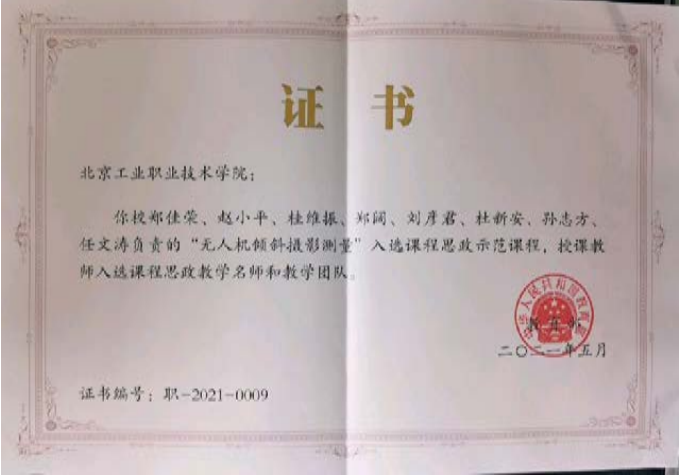 证书
北京工业职业技术学院：
你校郑佳荣、赵小平、桂维振、郑阔、刘彦君、杜新安、孙志方、
任文涛负责的“无人机倾斜摄影测量”入选课程思政示范课程，授课教
师入选课程思政教学名师和教学团队。
中华人民共和国教育部
教育部
二〇二一年五月
证书编号：职-2021-0009